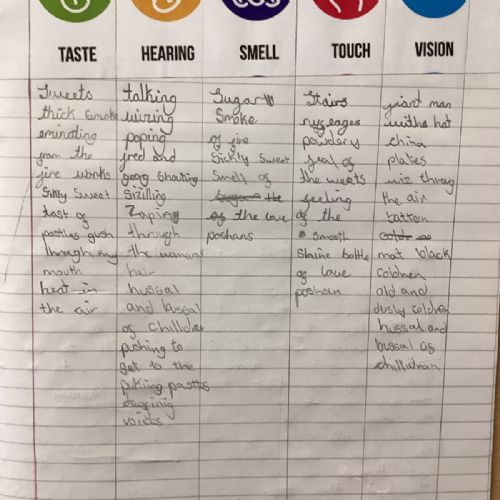 TASTE
Sweets
thick smoke
eminating
from the
fire works
Silly Sweet
tast of
pastles gush
through my
mouth
heat in
the air
HEARING
talking
wizing
poping
fred and
gorg Shouting
sizilling
Zaping
through
the womans
hair
hussal
and bussal
of chilldren
pushing to
get to the
puking pastles
voices
SMELL
Sugar
Smoke
of fire
Sickly Sweet
Smell of
of the love
poshans
TOUCH
Stairs
powdery
feal of
the sweets
feeling
of the
smooth
Shaine bottle
of love
poshan
VISION
giant man
withs hat
china
plates
wiz throug
the air
mat black
coldren
old and
dusty coldren
hussal and
bussal of
chilldran